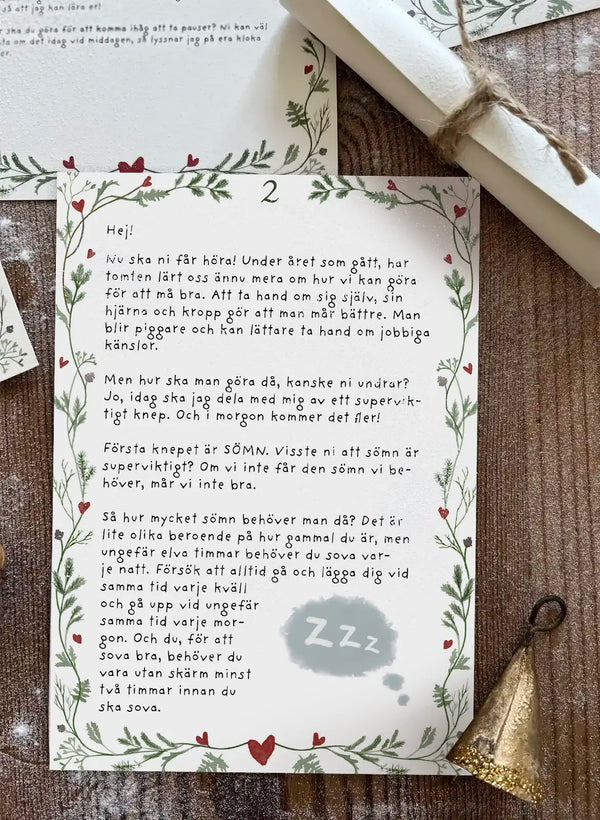 så att jag kan lära er!
r ska du göra för att komma ihåg att ta pauser? Ni kan väl
ta om det idag vid middagen, så lyssnar jag på era kloka
er.
2
Hej!
Nu ska ni får höra! Under året som gått, har
tomten lärt oss ännu mera om hur vi kan göra
för att må bra. Att ta hand om sig själv, sin
hjärna och kropp gör att man mår bättre. Man
blir piggare och kan lättare ta hand om jobbiga
känslor.
Men hur ska man göra då, kanske ni undrar?
Jo, idag ska jag dela med mig av ett supervik-
tigt knep. Och i morgon kommer det fler!
Första knepet är SÖMN. Visste ni att sömn är
superviktigt? Om vi inte får den sömn vi be-
höver, mår vi inte bra.
Så hur mycket sömn behöver man då? Det är
lite olika beroende på hur gammal du är, men
ungefär elva timmar behöver du sova var-
je natt. Försök att alltid gå och lägga dig vid
samma tid varje kväll
och gå upp vid ungefär
samma tid varje mor-
gon. Och du, för att
sova bra, behöver du
vara utan skärm minst
två timmar innan du
ska sova.
Zzz